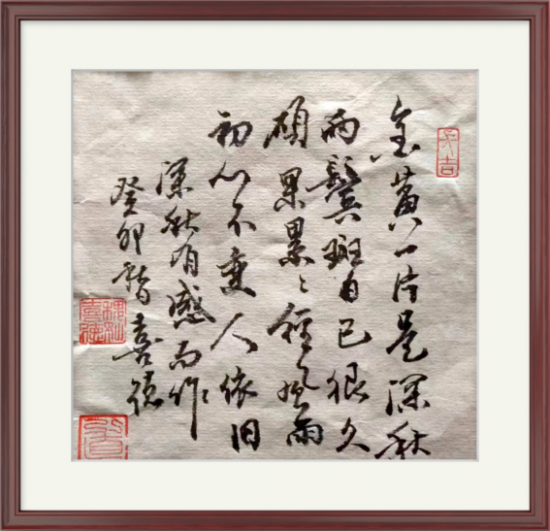 金黄一片是深秋
两鬓斑白已很久
硕果累〻经风雨
初心不变人依旧
深秋有感而作
癸卯喜